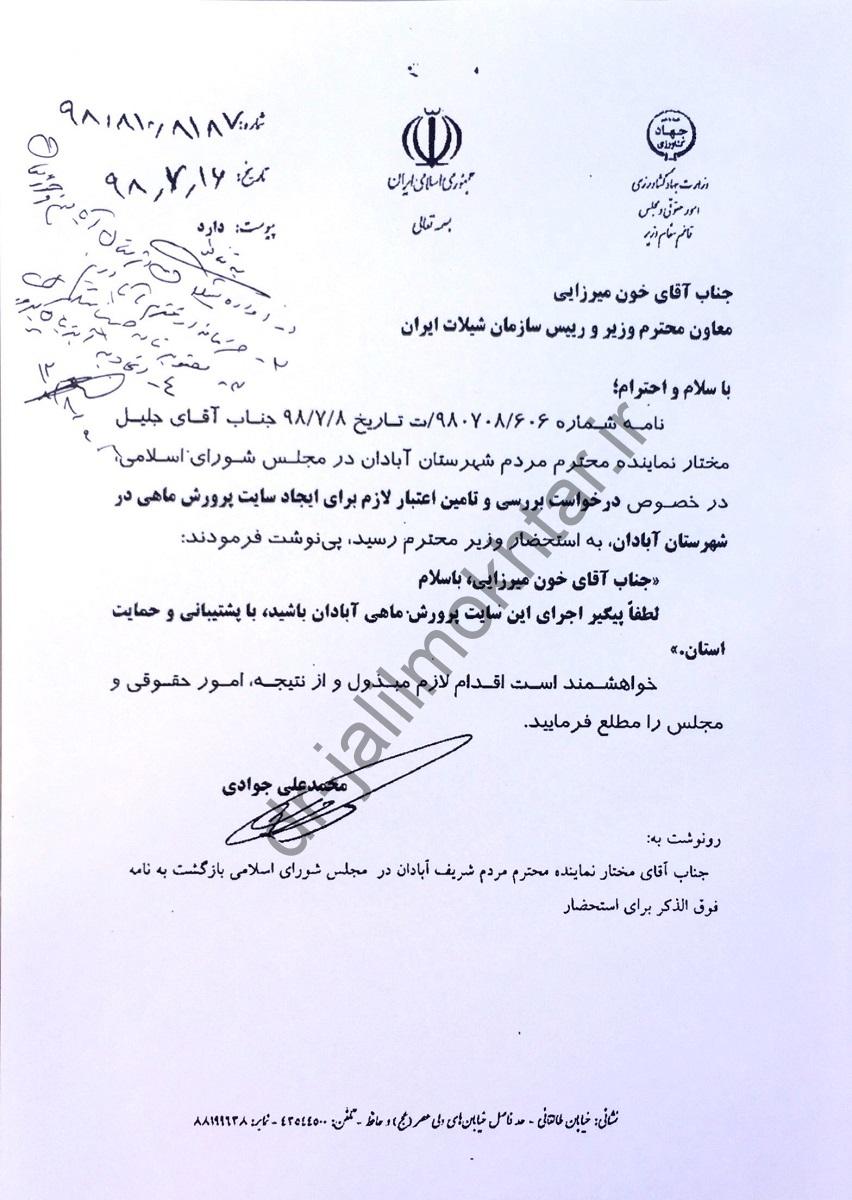 جهاد کشاورزی
وزارت جهاد کشاورزی
امور حقوقی و مجلس
قائم مقام وزیر
جمهوری اسلامی ایران
بسمه تعالی
شماره: ۹۸۰۸۱۰/۸۱۸۷
تاریخ: ۹۸/۷/۱۶
پیوست: دارد
جناب آقای خون میرزایی
معاون محترم وزیر و رییس سازمان شیلات ایران
با سلام و احترام؛
نامه شماره ۹۸۰۷۰۸/۶۰۶/ت تاریخ ۹۸/۷/۸ جناب آقای جلیل
مختار نماینده محترم مردم شهرستان آبادان در مجلس شورای اسلامی،
در خصوص درخواست بررسی و تامین اعتبار لازم برای ایجاد سایت پرورش ماهی در
شهرستان آبادان، به استحضار وزیر محترم رسید، پی‌نوشت فرمودند:
«جناب آقای خون میرزایی، باسلام
لطفاً پیگیر اجرای این سایت پرورش ماهی آبادان باشید، با پشتیبانی و حمایت
استان.»
خواهشمند است اقدام لازم مبذول و از نتیجه، امور حقوقی و
مجلس را مطلع فرمایید.
محمدعلی جوادی
رونوشت به:
جناب آقای مختار نماینده محترم مردم شریف آبادان در مجلس شورای اسلامی بازگشت به نامه
فوق الذکر برای استحضار
نشانی: خیابان طالقانی - حد فاصل خیابان‌های ولی عصر (عج) و حافظ - تلفن: ۴۳۵۴۴۵۰۰ - نمابر: ۸۸۱۹۹۶۳۸
dr-jalilmokhtar.ir